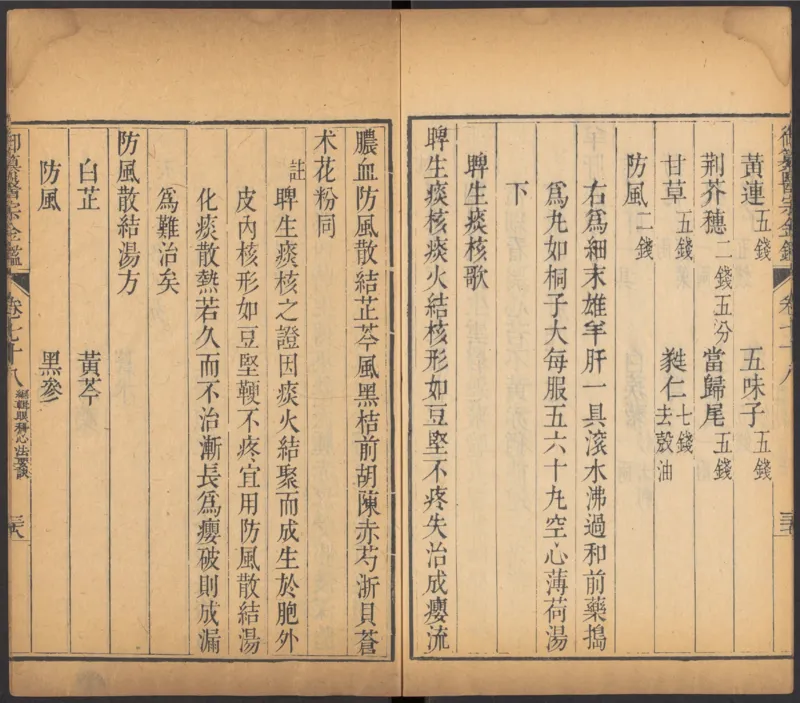 御纂醫宗金鑑 卷七十八
黃連五錢 五味子五錢
荆芥穗二錢五分 當歸尾五錢
甘草五錢 蕤仁七錢去殼油
防風二錢
右爲細末雄羊肝一具滾水沸過和前藥搗
爲丸如桐子大每服五六十丸空心薄荷湯
下
脾生痰核歌
脾生痰核痰火結核形如豆堅不疼失治成癭流
膿血防風散結芷芩風黑桔前胡陳赤芍浙貝蒼
术花粉同
註脾生痰核之證因痰火結聚而成生於胞外
皮內核形如豆堅鞕不疼宜用防風散結湯
化痰散熱若久而不治漸長爲癭破則成漏
爲難治矣
防風散結湯方
白芷 黃芩
防風 黑參
御纂醫宗金鑑 卷七十八 編輯眼科心法要訣